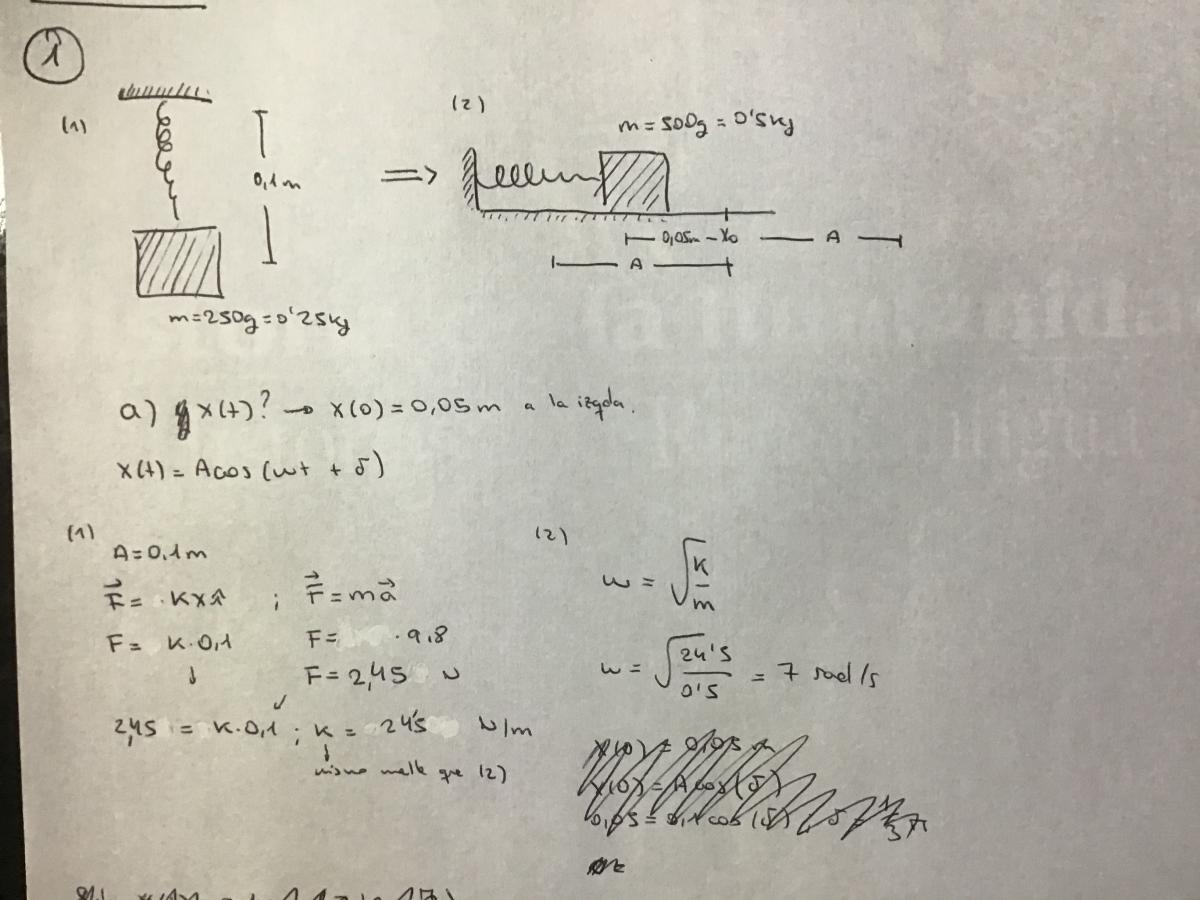 1
(1)
0,1m
m=250g=0'25kg
=>
(2)
m=500g=0'5kg
0,05m - X0
A
A
a) X(t)? → X(0) = 0,05m a la izqda.
X(t) = A cos (ωt + δ)
(1)
A=0,1m
F = KX ; F = ma
F = K·0,1 F = ·9,8
F = 2,45 N
2,45 = K·0,1 ; K = 24'5 N/m
mismo que (2)
(2)
ω = √K/m
ω = √24'5/0'5 = 7 rad/s
X(0) = 0,05
X(0) = A cos (δ)